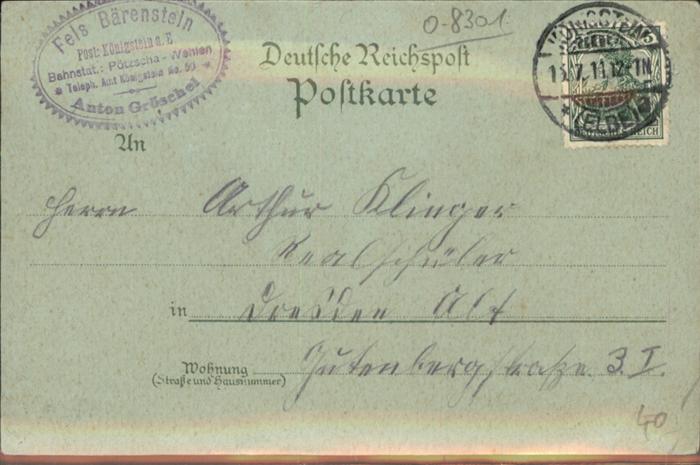 Fels Bärenstein
Post: Königstein a. E.
Bahnstat.: Pötzscha-Wehlen
Teleph. Amt Königstein No. 50
Anton Gröschel
0-8301
KÖNIGSTEIN
(ELBE)
Deutsche Reichspost
Postkarte
DEUTSCHES REICH
An
Herrn Arthur Klinger
Realschüler
in Dresden Alt
Wohnung Gutenbergstraße 3. I.
(Straße und Hausnummer)
40